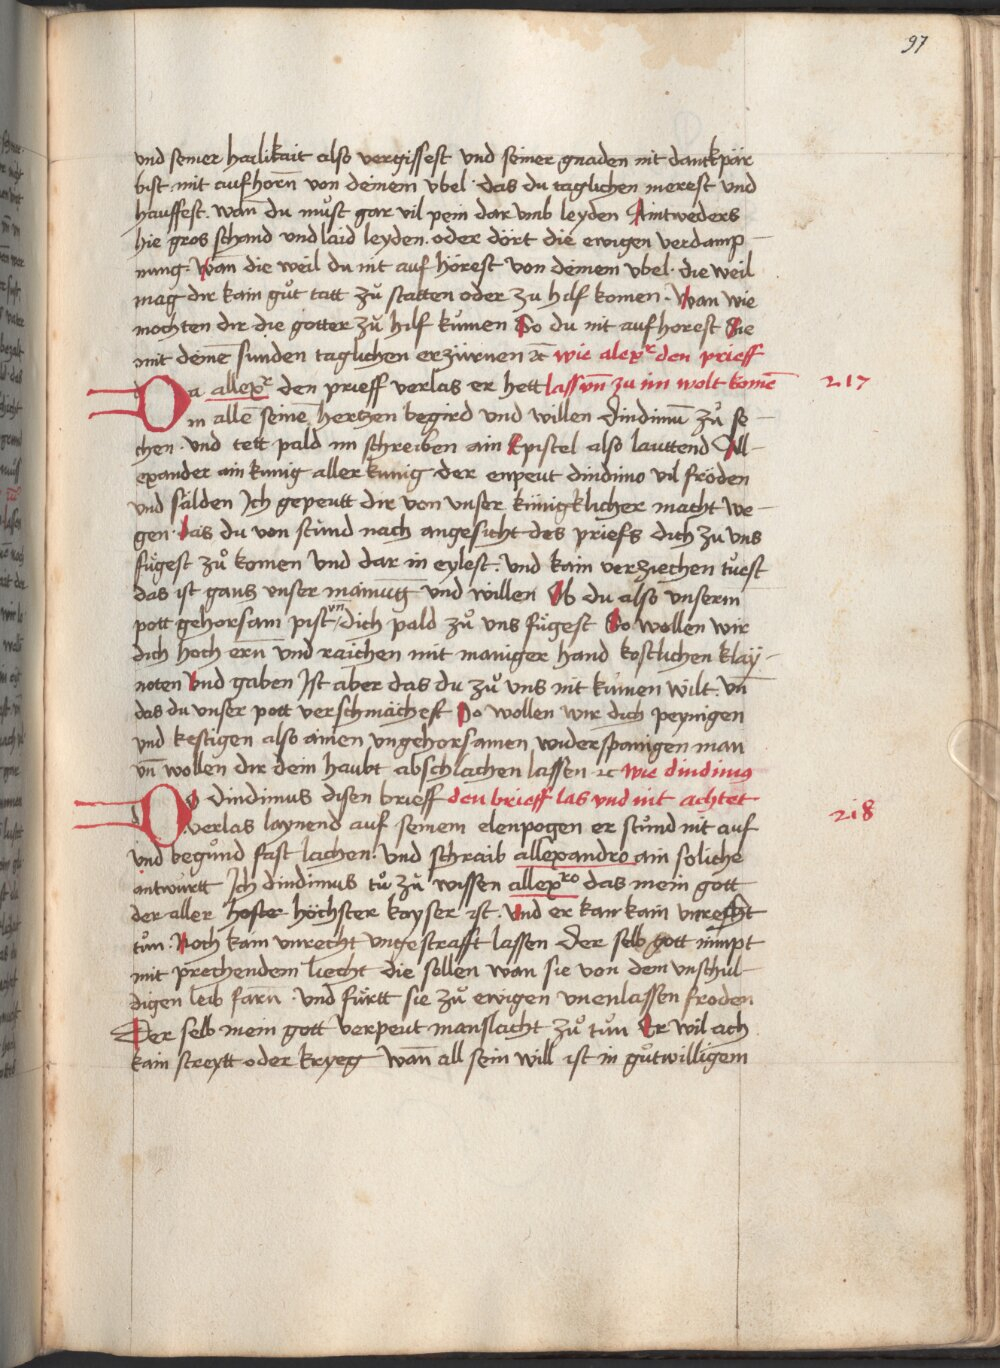 97
vnd seiner hailikait also vergissest vnd seiner gnaden nit danckpär
bist mit aufhorn̄ von deinem vbel · das du taglichen merest vnd
hauffest. wan̄ du mu᷎st gar vil pein dar vmb leyden Aintweders
hie gros schand vnd laid leyden. oder dört die ewigen verdamp-
nung. Wan̄ die weil du nit auf hörest von deinem vbel. die weil
mag dir kain gůt tatt zů statten oder zu hilf komen. Wan wie
mochten dir die gotter zů hilf kumen So du nit auf horest Sie
mit deinē sunden taglichen erzürnen ⁊c̄ wie alexr den prieff
Da allexr den prieff verlas er hett lassen vn̄ zu im wolt komē
217
in allē seinē hertzen begird vnd willen dindimū zů se-
chen. vnd tett pald im schreiben ain Epistel also lauttend All-
exander ain kunig aller kunig der enpeut dindimo vil fröden
vnd sälden Ich gepeutt dir von vnser künigklicher macht we-
gen. Das du von stund nach angesicht des priefs dich zu vns
fügest zů komen vnd dar in eylest. vnd kain verziechen tůest
das ist gans vnser mainūg vnd willen Ob du also vnserm
pott gehorsam pist vn̄ dich pald zů vns fügest So wollen wir
dich hoch ern̄ vnd raichen mit maniger hand kostlichen klay-
noten Vnd gaben Ist aber das du zů vns nit kumen wilt. vn̄
das du vnser pott verschmächest So wollen wir dich peynigen
vnd kestigen also ainen vngehorsamen widerspanigen man
vn̄ wollen dir dein haubt abschlachen lassen ⁊c wie dindimus
Do dindimus disen brieff den brieff las vnd nit achtet
218
verlas laynend auf seinem elenpogen er stůnd nit auf
vnd begůnd fast lachen. vnd schraib allexandro ain soliche
antwurtt Ich dindimus tů zů wissen allexro das mein gott
der aller hoster höchster kayser ist. Vnd er kan kain vnrecht
tůn. Noch kain vnrecht vngestrafft lassen Der selb gott nimpt
mit prechendem liecht die sellen wan sie von dem vnschul-
digen leib farn̄. vnd fürtt sie zů ewigen vnenlassen froden
Der selb mein gott verpeut manslacht zů tůn Er wil ach
kain streytt oder kryeg wan̄ all sein will ist in gůtwilligem